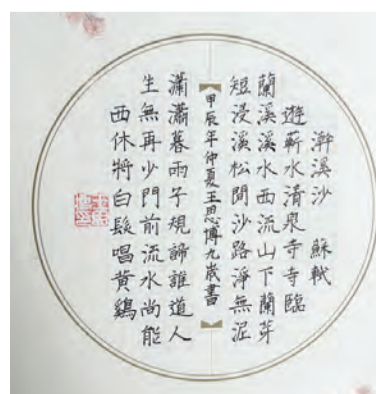 澣溪沙 蘇軾
遊蘄水清泉寺寺臨
蘭溪溪水西流山下蘭芽
短浸溪松間沙路淨無泥
甲辰年仲夏王思博九歲書
瀟瀟暮雨子規諦誰道人
生無再少門前流水尚能
西休將白髮唱黄鷄